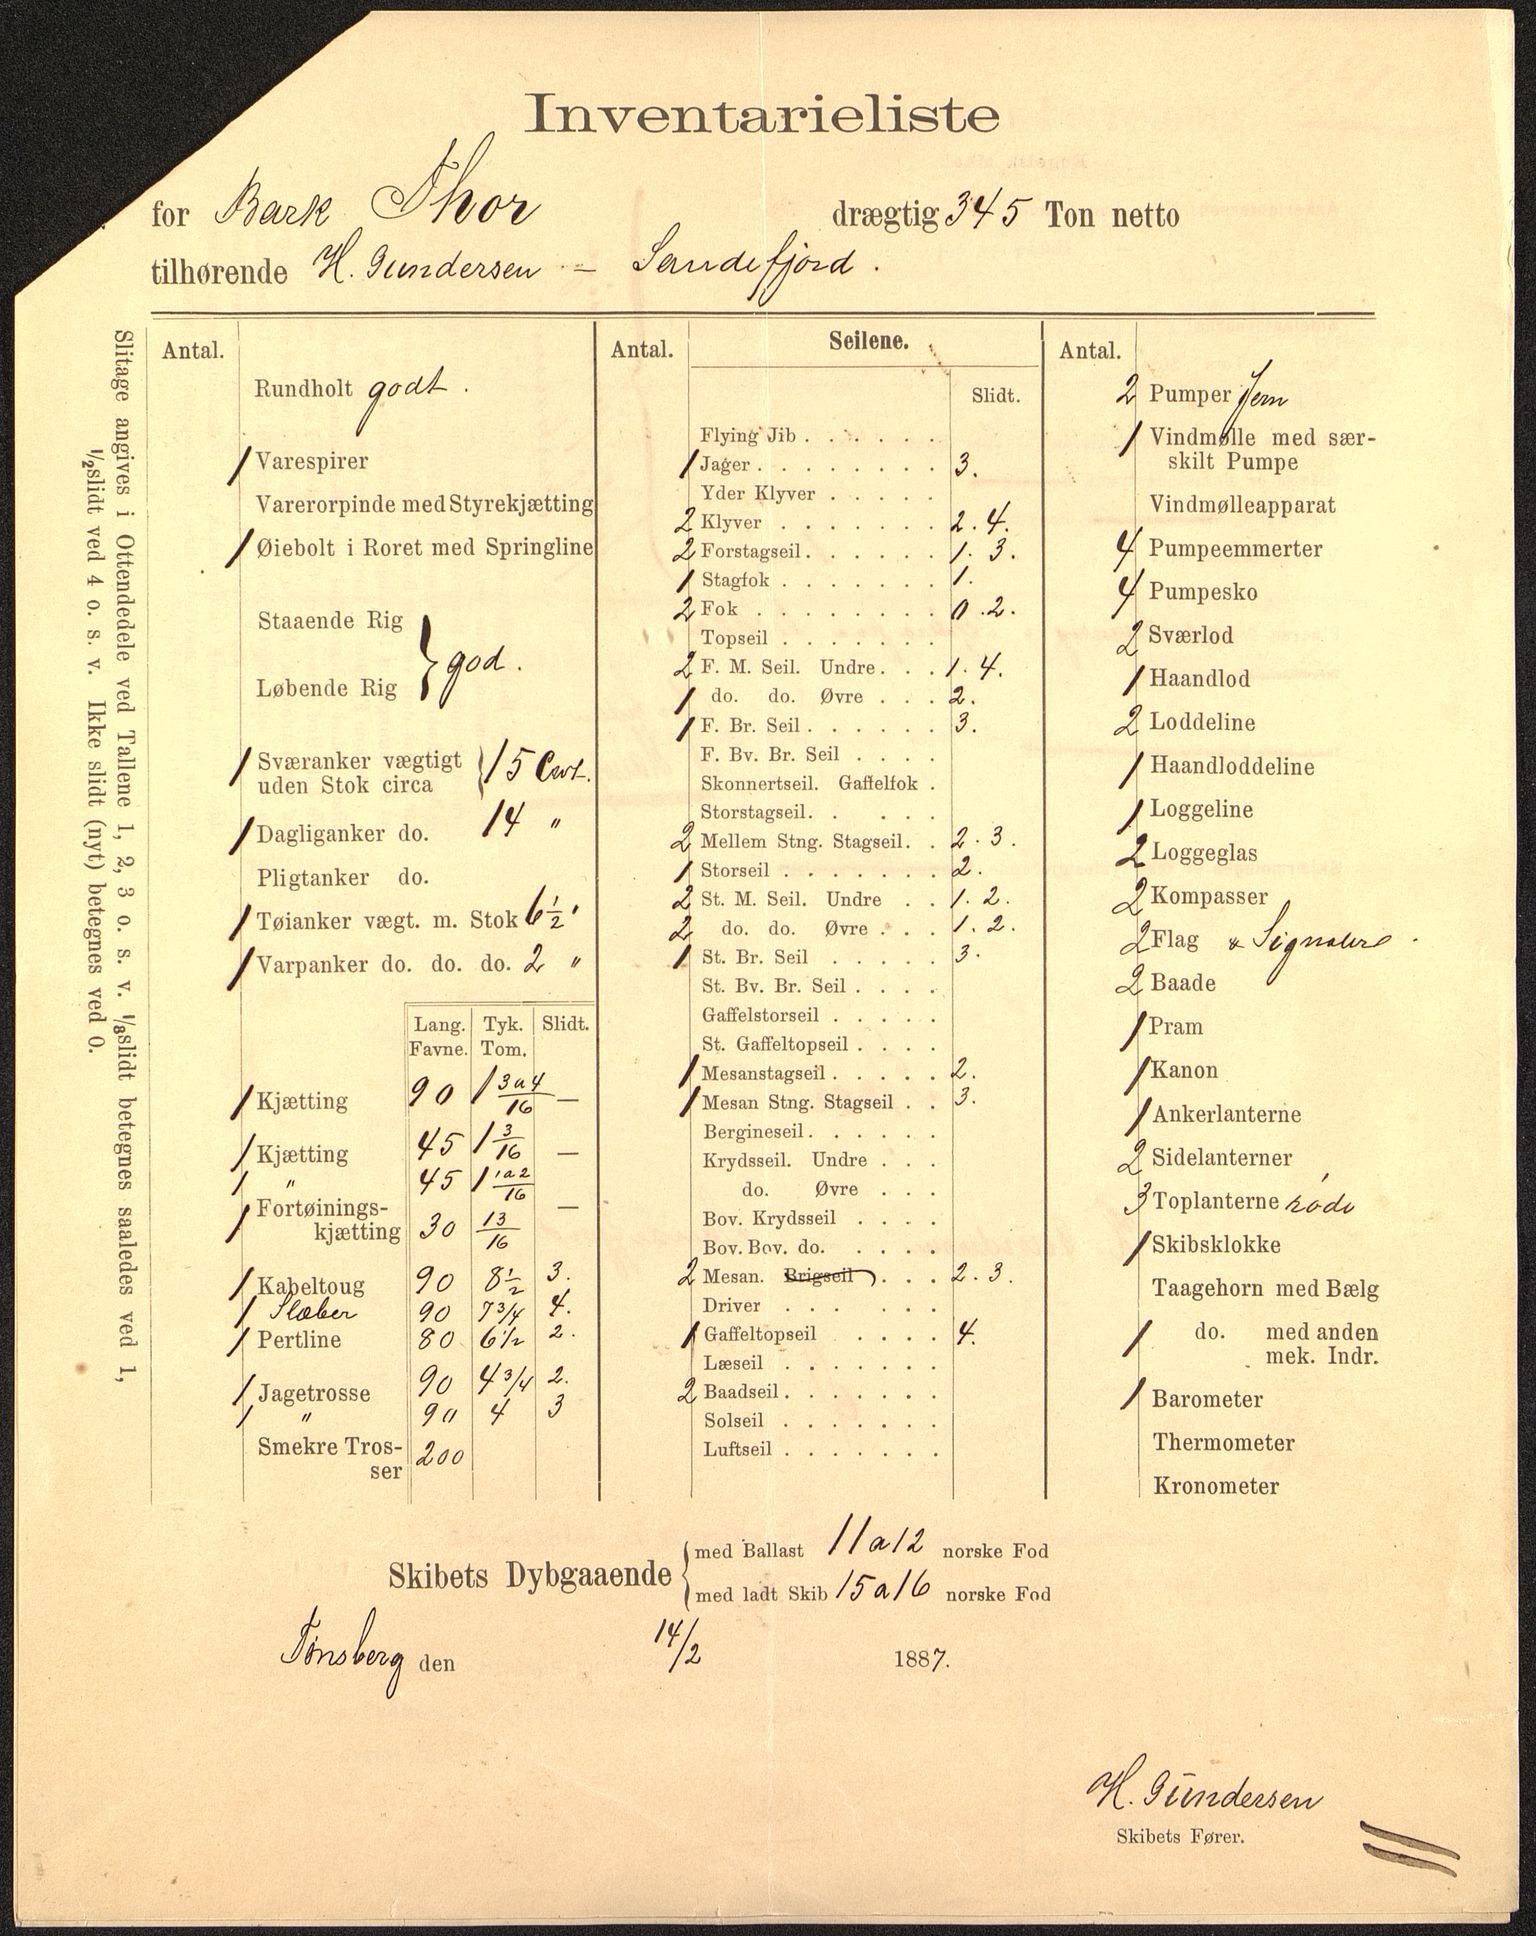 Inventarieliste
for Bark Thor drægtig 345 Ton netto
tilhørende H. Gundersen – Sandefjord.
Slitage angives i Ottendedele ved Tallene 1, 2, 3 o. s. v. 1/8 slidt betegnes saaledes ved 1,
1/2 slidt ved 4 o. s. v. Ikke slidt (nyt) betegnes ved 0.
Antal.
Rundholt godt.
1 Varespirer
Varerorpinde med Styrekjætting
1 Øiebolt i Roret med Springline
Staaende Rig
Løbende Rig } god.
1 Sværanker vægtigt
uden Stok circa } 15 Cwt.
1 Dagliganker do. 14 "
Pligtanker do.
1 Tøianker vægt. m. Stok 6 1/2 "
1 Varpanker do. do. do. 2 "
Lang. Tyk. Slidt.
Favne. Tom.
1 Kjætting 90 1 3a4/16 —
1 Kjætting 45 1 3/16 —
1 " 45 1 1a2/16
1 Fortøinings-
kjætting 30 13/16 —
1 Kabeltoug 90 8 1/2 3.
1 Slæber 90 7 3/4 4.
1 Pertline 80 6 1/2 2.
1 Jagetrosse 90 4 3/4 2.
1 " 90 4 3
Smekre Tros-
ser 200
Antal. Seilene.
Slidt.
Flying Jib . . . . . .
1 Jager . . . . . . . . 3.
Yder Klyver . . . . .
2 Klyver . . . . . . . 2. 4.
2 Forstagseil . . . . . . 1. 3.
1 Stagfok . . . . . . . 1.
2 Fok . . . . . . . . 0. 2.
Topseil . . . . . . .
2 F. M. Seil. Undre . . . 1. 4.
1 do. do. Øvre . . . 2.
1 F. Br. Seil . . . . . . 3.
F. Bv. Br. Seil . . . .
Skonnertseil. Gaffelfok .
Storstagseil. . . . .
2 Mellem Stng. Stagseil. . 2. 3.
1 Storseil . . . . . . . 2.
2 St. M. Seil. Undre . . 1. 2.
2 do. do. Øvre . . . 1. 2.
1 St. Br. Seil . . . . . 3.
St. Bv. Br. Seil . . . .
Gaffelstorseil . . . . .
St. Gaffeltopseil . . . .
1 Mesanstagseil . . . . . 2.
1 Mesan Stng. Stagseil . . 3.
Bergineseil . . . . . .
Krydsseil. Undre . . .
do. Øvre . . .
Bov. Krydsseil . . . .
Bov. Bov. do. . . . .
2 Mesan. Brigseil . . . 2. 3.
Driver . . . . . .
1 Gaffeltopseil . . . . 4.
Læseil . . . . . . .
2 Baadseil . . . . . . .
Solseil . . . . . . .
Luftseil . . . . . . .
Antal.
2 Pumper Jern
1 Vindmølle med sær-
skilt Pumpe
Vindmølleapparat
4 Pumpeemmerter
4 Pumpesko
2 Sværlod
1 Haandlod
2 Loddeline
1 Haandloddeline
1 Loggeline
2 Loggeglas
2 Kompasser
2 Flag & Signalere.
2 Baade
1 Pram
1 Kanon
1 Ankerlanterne
2 Sidelanterner
3 Toplanterne røde
1 Skibsklokke
Taagehorn med Bælg
1 do. med anden
mek. Indr.
1 Barometer
Thermometer
Kronometer
Skibets Dybgaaende { med Ballast 11 a 12 norske Fod
med ladt Skib 15 a 16 norske Fod
Tønsberg den 14/2 1887.
H. Gundersen
Skibets Fører.